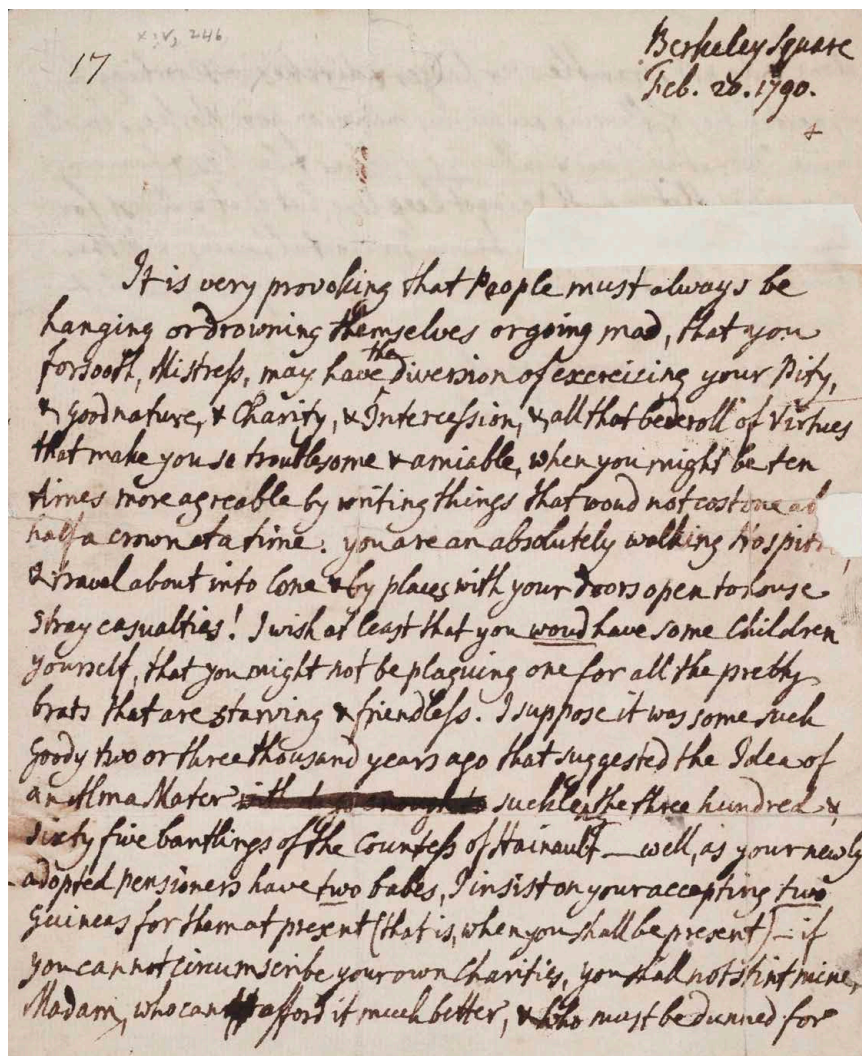 xiv, 246
17
Berkeley Square
Feb. 20. 1790.
It is very provoking that People must always be
hanging or drowning themselves or going mad, that you
forsooth, Mistress, may have the Diversion of exercising your Pity,
& good nature, & Charity, & Intercession, & all that bederoll of Virtues
that make you so troublesome & amiable, when you might be ten
times more agreable by writing things that woud not cost one ab
half a crown at a time. you are an absolutely walking Hospit
& travel about into lone & by places with your doors open to house
stray casualties! I wish at least that you woud have some Children
yourself, that you might not be plaguing one for all the pretty
brats that are starving & friendless. I suppose it was some such
Goody two or three thousand years ago that suggested the Idea of
an Alma Mater suckling the three hundred &
sixty five bantlings of the Countess of Hainault — well, as your newly
adopted pensioners have two babes, I insist on your accepting two
Guineas for them at present (that is, when you shall be present) — if
you cannot circumscribe your own Charities, you shall not stint mine,
Madam, who can afford it much better, & who must be dunned for